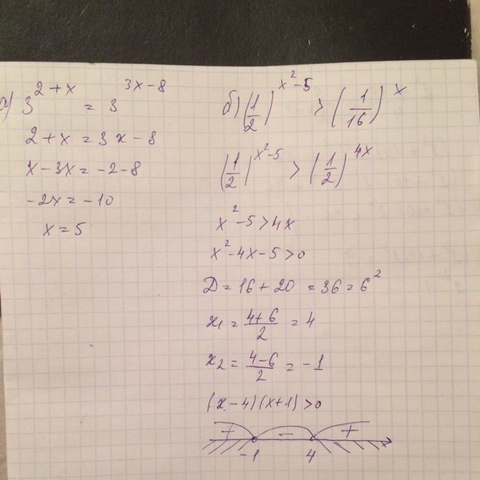 а) 3^{2+x} = 3^{3x-8}
2+x = 3x-8
x-3x = -2-8
-2x = -10
x = 5
б) (1/2)^{x^2-5} > (1/16)^x
(1/2)^{x^2-5} > (1/2)^{4x}
x^2-5 > 4x
x^2-4x-5 > 0
D = 16+20 = 36 = 6^2
x_1 = (4+6)/2 = 4
x_2 = (4-6)/2 = -1
(x-4)(x+1) > 0
+ - +
-1 4 x